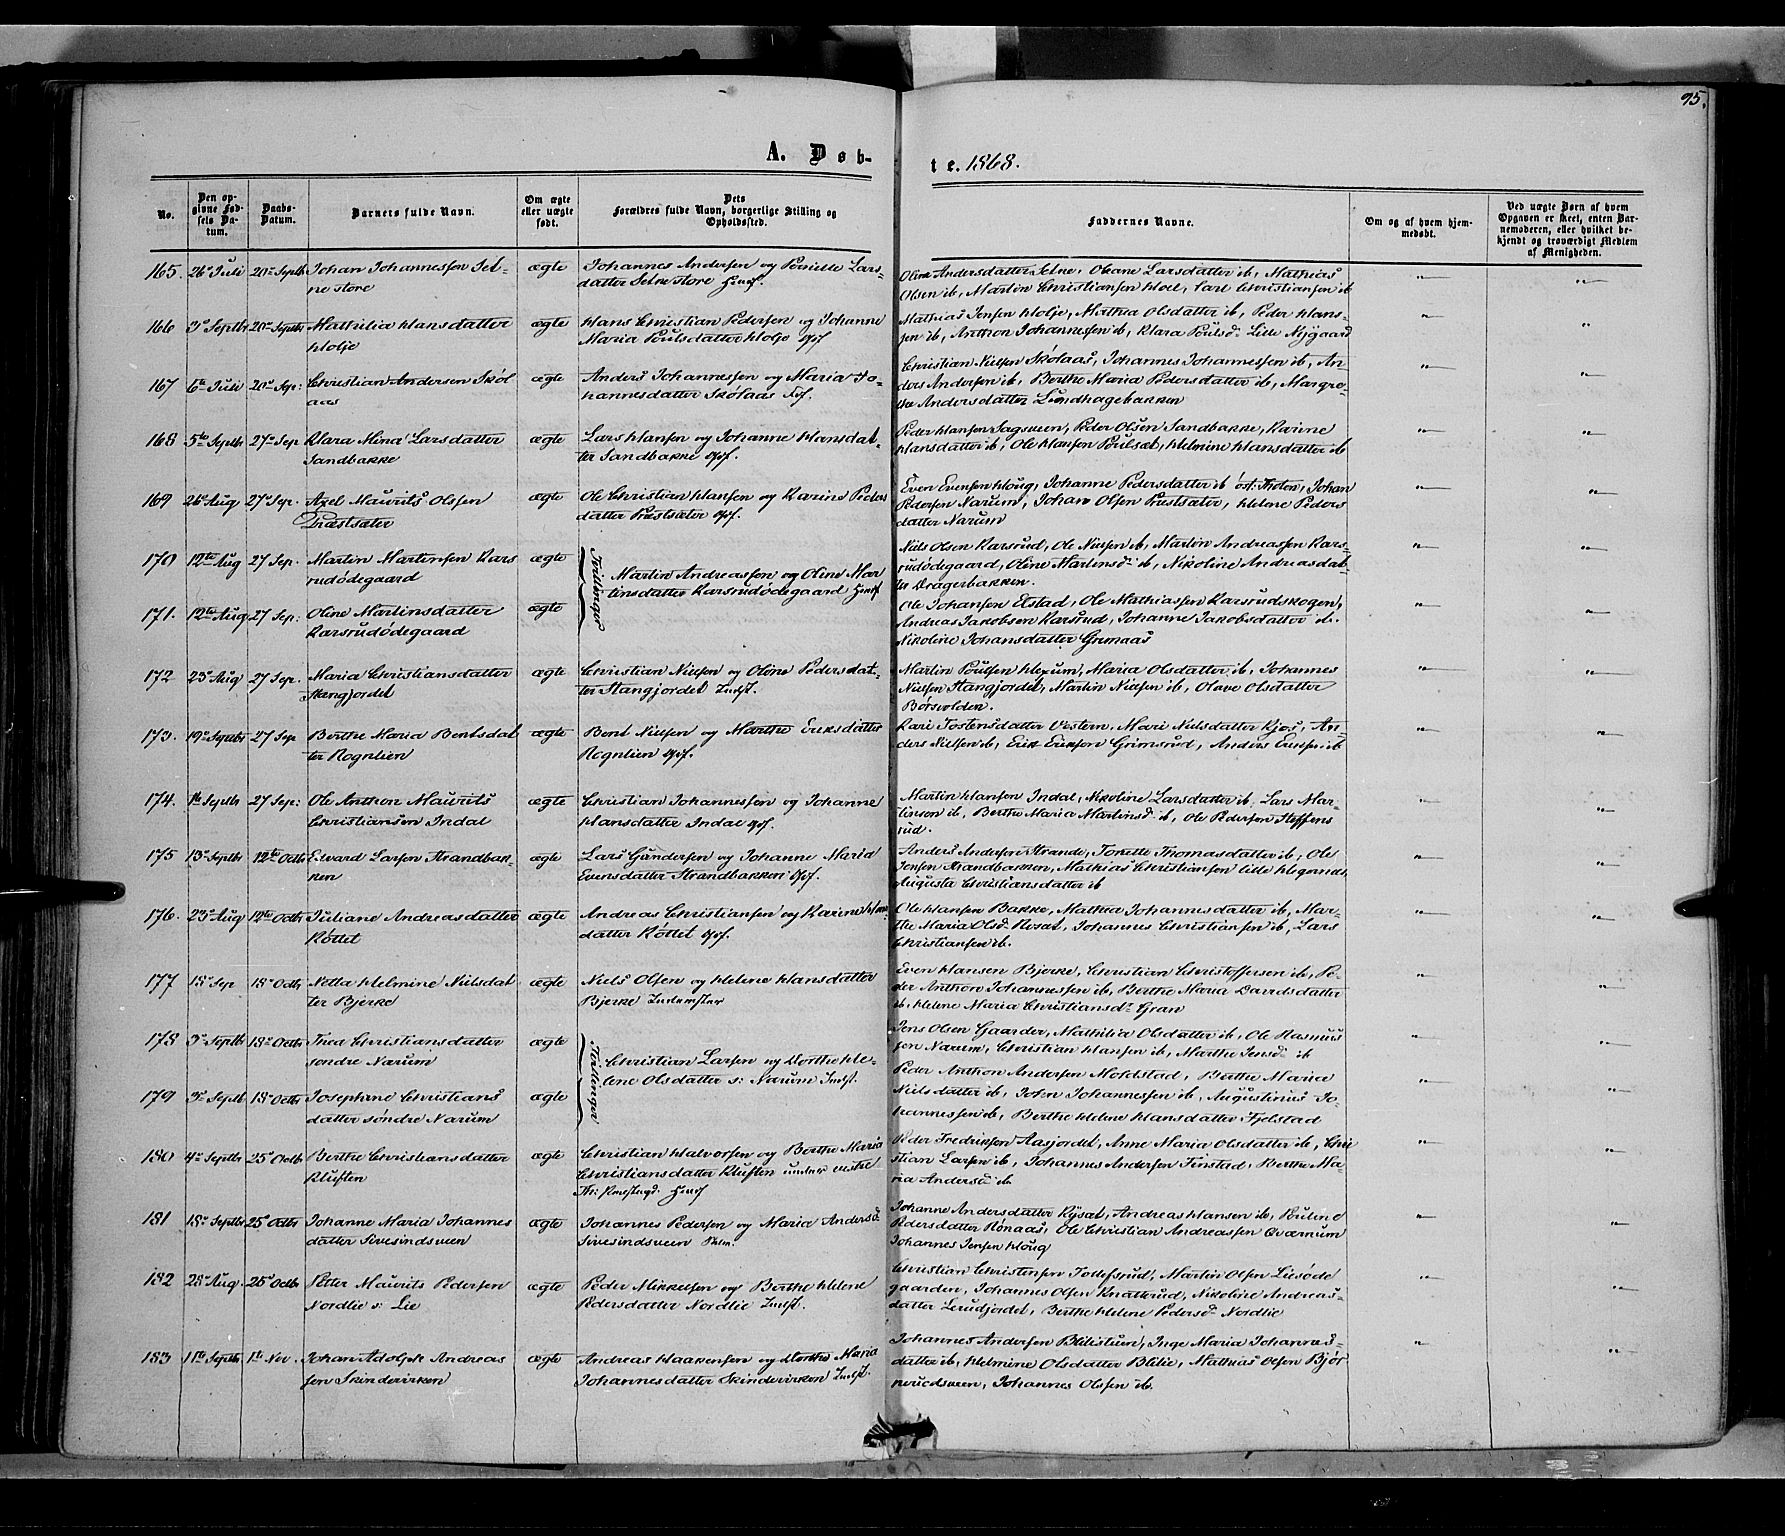 95.
A. Døb-
te. 1868.
No.
Den op-
givne Fød-
sels Da-
tum.
Daabs-
Datum.
Barnets fulde Navn.
Om ægte
eller uægte
født.
Dets
Forældres fulde Navn, borgerlige Stilling og
Opholdssted.
Faddernes Navne.
Om og af hvem hjem-
medøbt.
Ved uægte Børn af hvem
Opgaven er skeet, enten Bar-
nemoderen, eller hvilket be-
kjendt og troværdigt Medlem
af Menigheden.
165. 26de Juli 20de Septbr Johan Johannessen Sel- ægte Johannes Andersen og Pernille Lars-
ne store datter Selne store
Oline Andersdatter Selne, Oleane Larsdatter ib, Mathias
Olsen ib, Martin Christiansen Hoel, Carl Christiansen ib
166 3de Septbr 20de Septbr Mathilia Hansdatter ægte Hans Christian Pedersen og Johanne
Holje Maria Poulsdatter Holje
Mathias Jensen Holje, Mathea Olsdatter ib, Peder Han-
sen ib, Anthon Johannessen ib, Klara Poulsd. Lille Nygaard
167 6te Juli 20de Sep: Christian Andersen Skøl ægte Anders Johannessen og Maria Jo-
aas hannesdatter Skølaas
Christian Nielsen Skølaas, Johannes Johannessen ib, An-
ders Andersen ib, Berthe Maria Pedersdatter ib, Margre-
the Andersdatter Lundhagebakken
168 5te Septbr 27de Sep Klara Mina Larsdatter ægte Lars Hansen og Johanne Hansdat-
Sandbakke ter Sandbakke
Peder Hansen Sagsveen, Peder Olsen Sandbakke, Karine
Hansdatter ib, Ole Hansen Poulsæt, Helmine Hansdatter ib
169 26de Aug 27de Sep. Axel Maurits Olsen ægte Ole Christian Hansen og Karine Peders
Præstsæter datter Præstsæter
Even Evensen Houg, Johanne Pedersdatter ib øst: Thoten, Johan
Pedersen Narum, Johan Olsen Præstsæter, Helene Peders
datter Narum
170 12te Aug 27 Sep. Martin Martinsen Kars ægte Tvillinger Martin Andreassen og Oline Mar
rudødegaard tinsdatter Karsrudødegaard
Niels Olsen Karsrud, Ole Nielsen ib, Martin Andreassen Kars-
rudødegaard, Oline Martinsd. ib, Nikoline Andreasdat-
ter Dragerbakken.
171. 12te Aug 27 Sep: Oline Martinsdatter ægte
Karsrudødegaard
Ole Johansen Elstad, Ole Mathiassen Karsrudskogen,
Andreas Jakobsen Karsrud, Johanne Jakobsdatter ib.
Nikoline Johansdatter Grimaas
172 23de Aug 27 Sep. Maria Christiansdatter ægte Christian Nielsen og Oline Pedersdat-
Stangjordet ter Stangjordet Indst.
Martin Poulsen Hexum, Maria Olsdatter ib, Johannes
Nielsen Stangjordet, Martin Nielsen ib, Olave Olsdatter
Børsvolden.
173. 19de Septbr 27 Sep Berthe Maria Bentsdat ægte Bent Nielsen og Marthe Eriksdatter
ter Rognlien Rognlien
Kari Tostensdatter Vestern, Mari Nielsdatter Kjos, An-
ders Nielsen ib, Erik Eriksen Grimsrud, Anders Eriksen ib
174. 1te Septbr 27 Sep: Ole Anthon Maurits ægte Christian Johannessen og Johanne
Christiansen Indal Hansdatter Indal
Martin Hansen Indal, Nikoline Larsdatter ib, Lars Mar-
tinsen ib, Berthe Maria Martinsd ib, Ole Pedersen Steffens
rud.
175 13de Septbr 12te Octbr Edvard Larsen Strandbak- ægte Lars Gundersen og Johanne Maria
ken Evensdatter Strandbakken
Anders Andersen Strande, Tonette Thomasdatter ib, Ole
Jensen Strandbakken, Mathias Christiansen lille
Augusta Christiansdatter ib
176. 23de Aug 12te Octbr Juliane Andreasdatter ægte Andreas Christiansen og Karine
Køttet datter Køttet
Ole Hansen Bakke, Mathea Johannesdatter ib, Mar-
the Maria Olsd. Rosæt, Johannes Christiansen ib, Lars
Christiansen ib.
177 18de Sep 18de Octbr Netta Helmine Nielsdat ægte Niels Olsen og Helene Hansdatter
ter Bjerke Bjerke
Even Hansen Bjerke, Christian Christoffersen ib, Pe-
der Anthon Johannessen ib, Berthe Maria Davidsdatter
ib, Helene Maria Christiansd. Gran
178 3de Septbr 18de Octbr Thea Christiansdatter ægte Tvillinger Christian Larsen og Dorthe He-
søndre Narum lene Olsdatter s: Narum Indst.
Jens Olsen Gaarder, Mathilia Olsdatter ib, Ole Rasmus
sen Narum, Christian Hansen ib, Marthe Jensd. ib
179 3de Septb 18de Octbr Josephine Christians ægte
datter søndre Narum
Peder Anthon Andersen Moldstad, Berthe Maria
Nielsdatter ib, John Johannessen ib, Augustinus Jo-
hannessen ib, Berthe Helene Hansdatter Fjelstad
180 4de Septbr 25de Octb. Berthe Christiansdatter ægte Christian Halvorsen og Berthe Maria
Kluften Christiansdatter Kluften under vestre
Peder Fredriksen Aasjordet, Anne Maria Olsdatter ib, Chri
stian Larsen ib, Johannes Andersen Finstad, Berthe Ma
ria Andersd. ib
181 18de Septbr 25de Octbr Johanne Maria Johannes ægte Johannes Pedersen og Maria Andersd
datter Sivesindsveen Sivesindsveen
Johanne Andersdatter Rysæt, Andreas Hansen ib, Pouline
Pedersdatter Rønaas, Ole Christian Andreassen Qværnum
Johannes Jensen Houg
182 28de Aug. 25de Octb Petter Maurits Pedersen ægte Peder Mikkelsen og Berthe Helene
Nordlie s: Lie Pedersdatter Nordlie Indst.
Christian Christensen Tollefsrud, Martin Olsen Liesøde
gaarden, Johannes Olsen Knatterud, Nikoline Andreas-
datter Lerudjordet, Berthe Helene Pedersd. Nordlie
183 11te Septbr 1te Nov. Johan Adolph Andreas ægte Andreas Haakensen og Dorthe Maria
sen Skindervirken Johannesdatter Skindervirken Indst.
Johannes Andersen Blilistuen, Inge Maria Johannes-
datter ib, Helmine Olsdatter Blilie, Mathias Olsen Bjør
nerudsveen, Johannes Olsen ib.